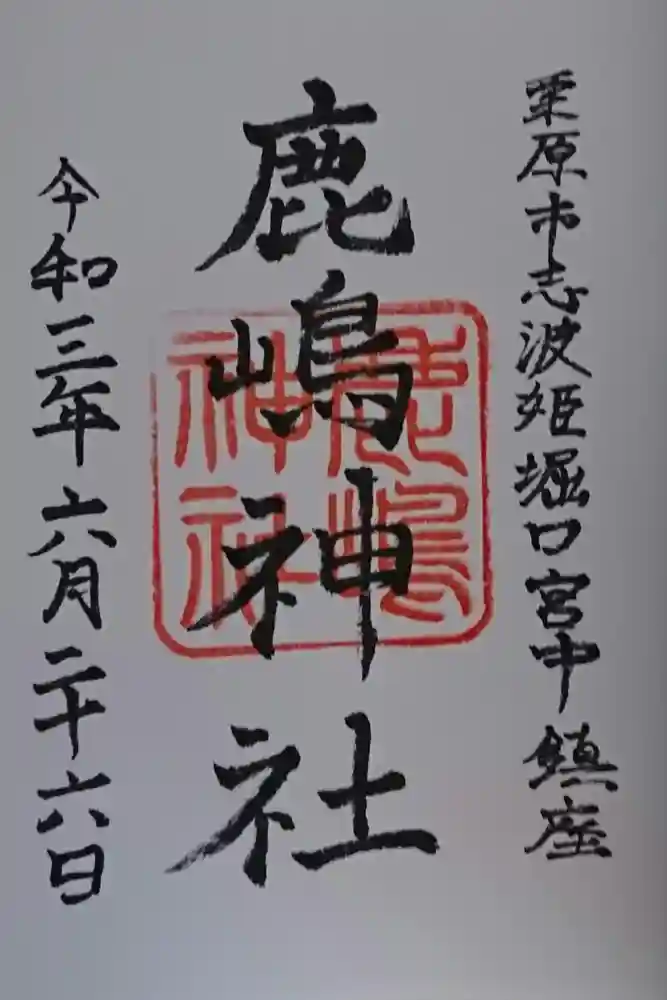 栗原市志波姫堀口宮中鎮座
鹿嶋神社
鹿嶋神社
令和三年六月二十六日